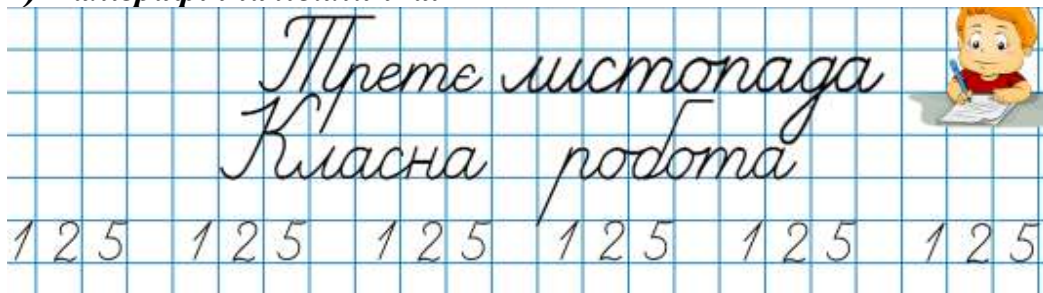 Третє листопада
Класна робота
125 125 125 125 125 125